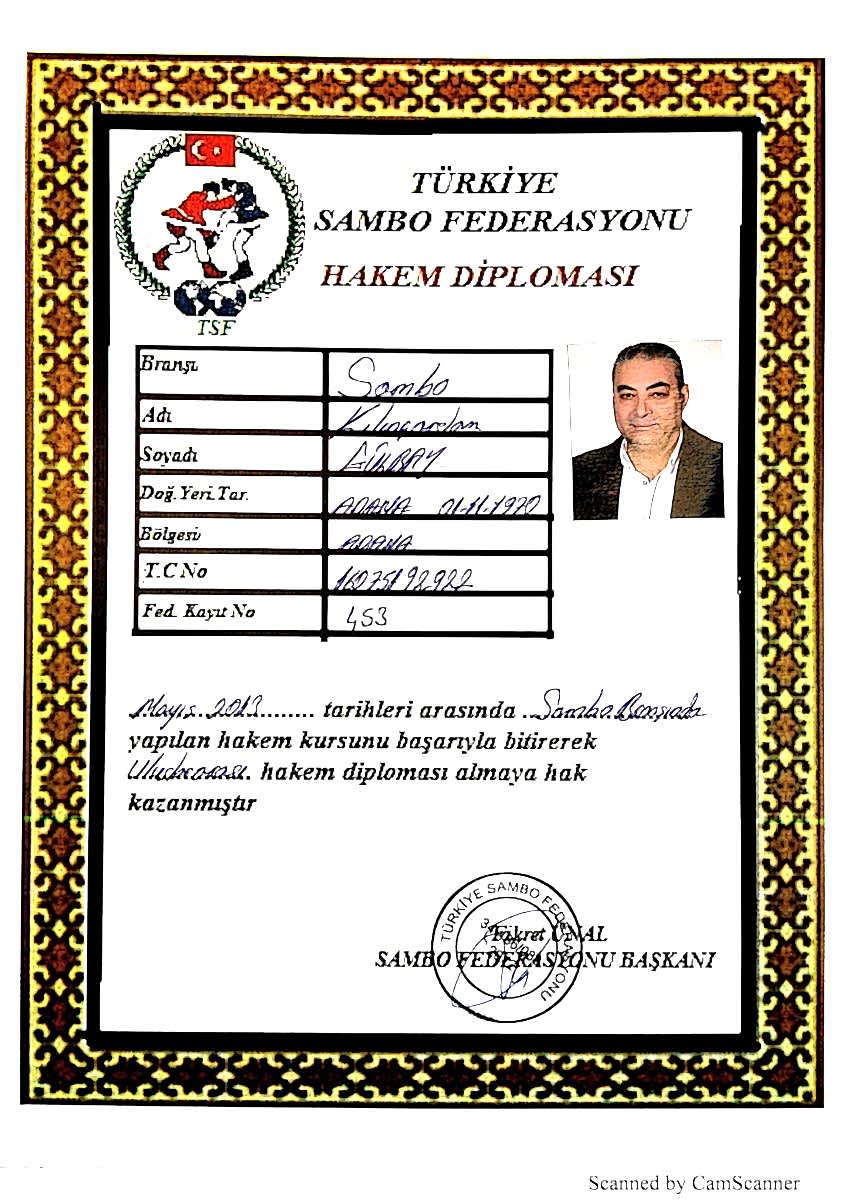 TÜRKİYE
SAMBO FEDERASYONU
HAKEM DİPLOMASI
TSF
Branşı Sambo
Adı Kılınçarslan
Soyadı GÜLBAY
Doğ. Yeri. Tar. ADANA 01-11-1970
Bölgesi ADANA
T.C No 16075192922
Fed. Kayıt No 453
Mayıs 2013........ tarihleri arasında ..Sambo Branşında
yapılan hakem kursunu başarıyla bitirerek
Uluslararası. hakem diploması almaya hak
kazanmıştır
TÜRKİYE SAMBO FEDERASYONU
Fikret ÜNAL
SAMBO FEDERASYONU BAŞKANI
Scanned by CamScanner